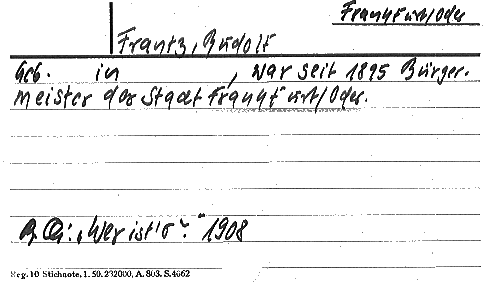 Frankfurt/Oder
Frantz, Rudolf
Geb. in , war seit 1895 Bürger-
meister der Stadt Frankfurt/Oder.
B. Qu: „Wer ist's?“ 1908
Reg. 10 Stichnote, 1. 50. 232000, A. 803. S. 4662